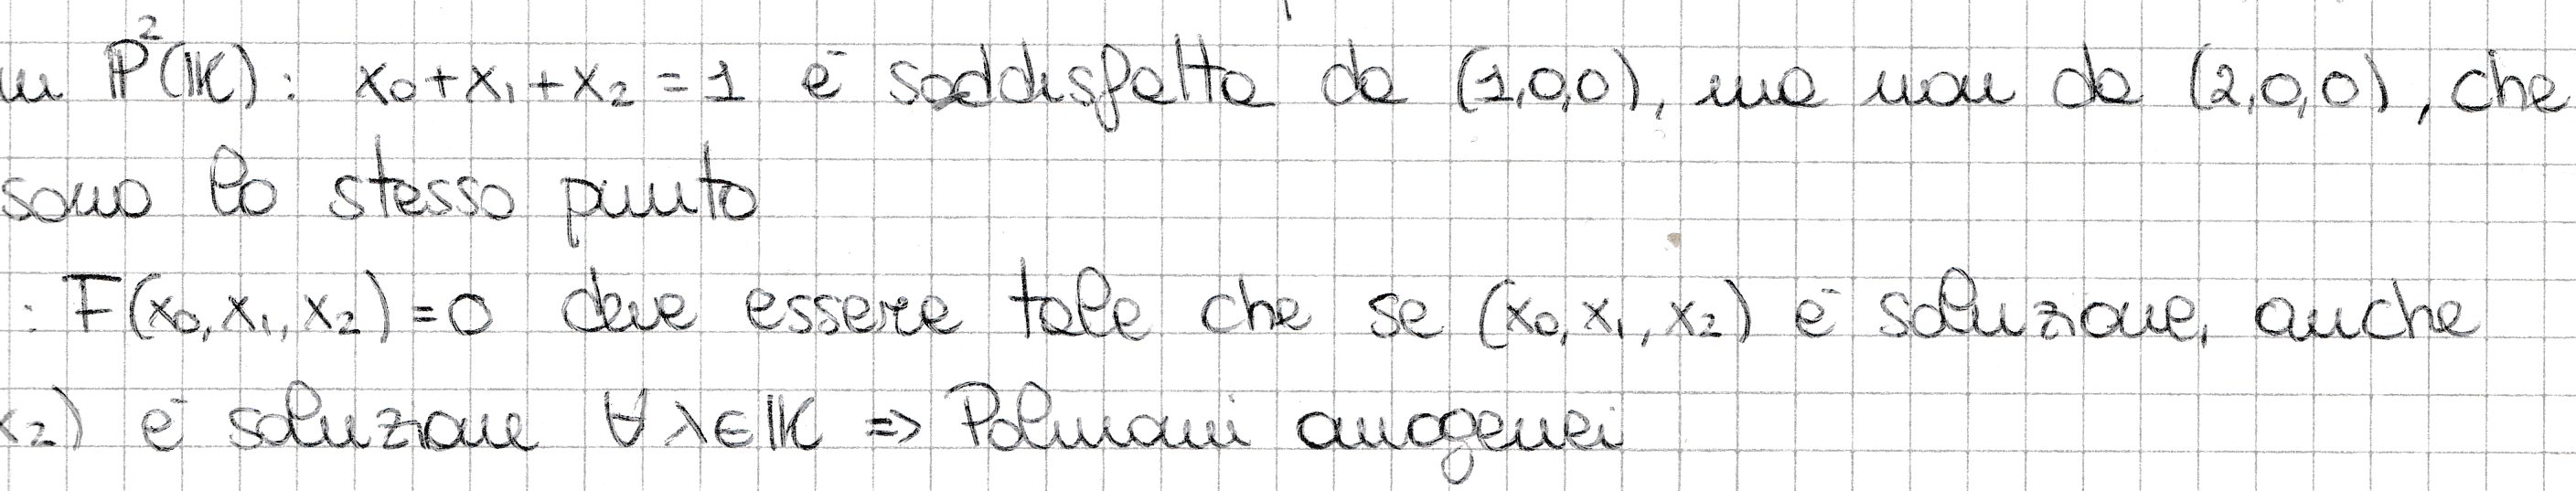 in P²(K): x₀+x₁+x₂=1 è soddisfatta da (1,0,0), ma non da (2,0,0), che
sono lo stesso punto
: F(x₀,x₁,x₂)=0 deve essere tale che se (x₀,x₁,x₂) è soluzione, anche
x₂) è soluzione ∀ λ∈K => Polinomi omogenei